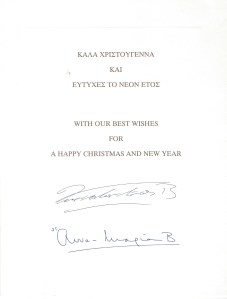 ΚΑΛΑ ΧΡΙΣΤΟΥΓΕΝΝΑ
ΚΑΙ
ΕΥΤΥΧΕΣ ΤΟ ΝΕΟΝ ΕΤΟΣ
WITH OUR BEST WISHES
FOR
A HAPPY CHRISTMAS AND NEW YEAR
Anna-Maria B